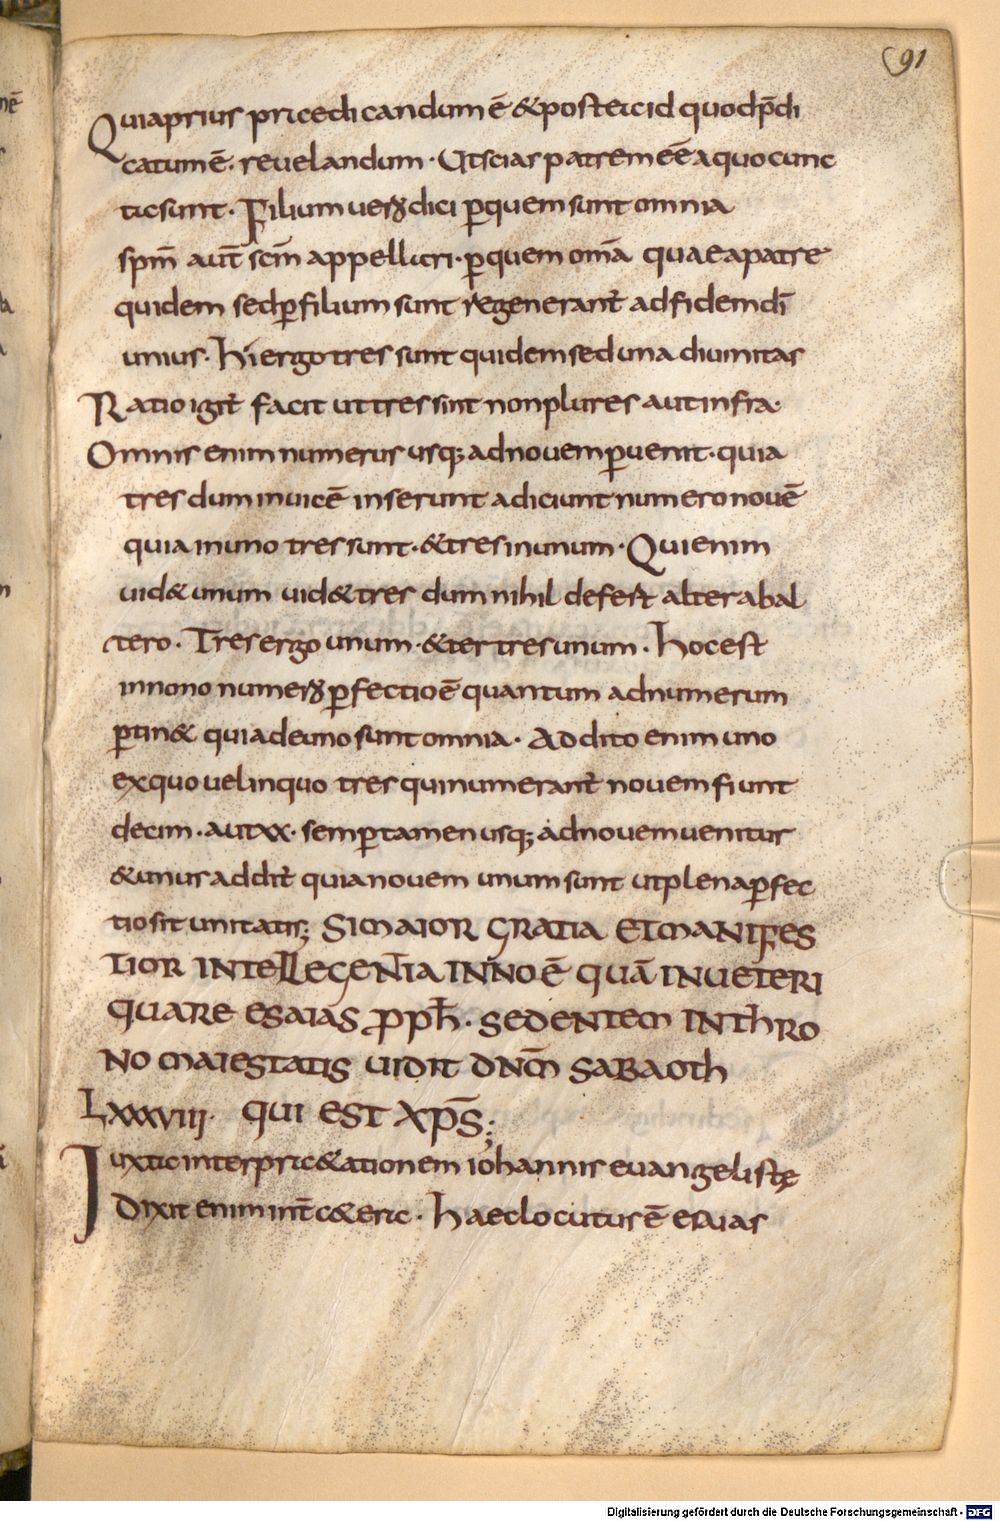 91
Quia prius praedicandum ē & postea id quod p̄di
catum ē. reuelandum. Ut sciar patrem eē a quo cunc
ta sunt. Filium uero dici ꝑ quem sunt omnia
spm̄ aut̄ scm̄ appellari. ꝑ quem om̄a quae a patre
quidem sed ꝑ filium sunt regenerant̄ ad fidem dī
unius. hi ergo tres sunt quidem sed una diuinitas
Ratio igit̄ facit ut tres sint non plures aut infra.
Omnis enim numerus usq; ad nouem ꝑuenit. quia
tres dum inuicē inserunt adiciunt numero nouē
quia in uno tres sunt. & tres in unum. Qui enim
uid& unum uid& tres dum nihil defest alter ab al
tero. Tres ergo unum. & ter tres unum. hoc est
in nono numero ꝑfectio ē quantum ad numerum
ꝑtin& quia de uno sunt omnia. Addito enim uno
ex quo uel in quo tres qui numerant̄ nouem fiunt
decim. aut xx. semꝑ tamen usq; ad nouem uenitur
& unus addit̄ quia nouem unum sunt ut plena ꝑfec
tio sit unitatis; SI MAIOR GRATIA ET MANIFES
TIOR INTELLEGENTIA IN NO ē QUĀ IN UETERI
QUARE ESAIAS PROPH̄. SEDENTEM IN THRO
NO MAIESTATIS UIDIT DN̄M SABAOTH
LXXXVIII. QUI EST XP̄S;
Iuxta interpraetationem iohannis euangelistę
Dixit enim int̄ c&era. haec locutus ē esaias
Digitalisierung gefördert durch die Deutsche Forschungsgemeinschaft - DFG